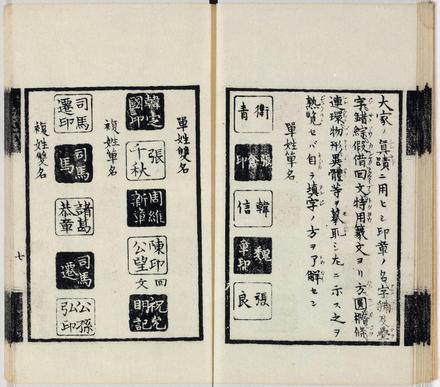 大家ノ眞蹟ニ用ヒシ印章ノ名字
字錯綜假借回文特用義文ヨリ方圓橢條
連環物形異體等ヲ摹取シ左ニ示ス之ヲ
熟覧セバ自ラ塡字ノ方ヲ了解セシ
單姓單名
衛青
張印
韓信
魏章印
張良
單姓雙名
韓安國印
張千秋
周維新章
陳印公望
回文
祝允明記
複姓單名
司馬遷印
司馬
諸葛恭章
司馬遷
公孫弘印
複姓雙名
七